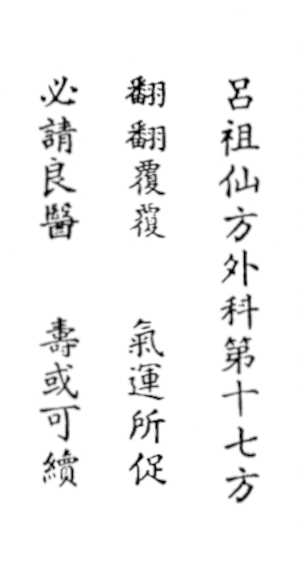 呂祖仙方外科第十七方
翻翻覆覆　氣運所促
必請良醫　壽或可續